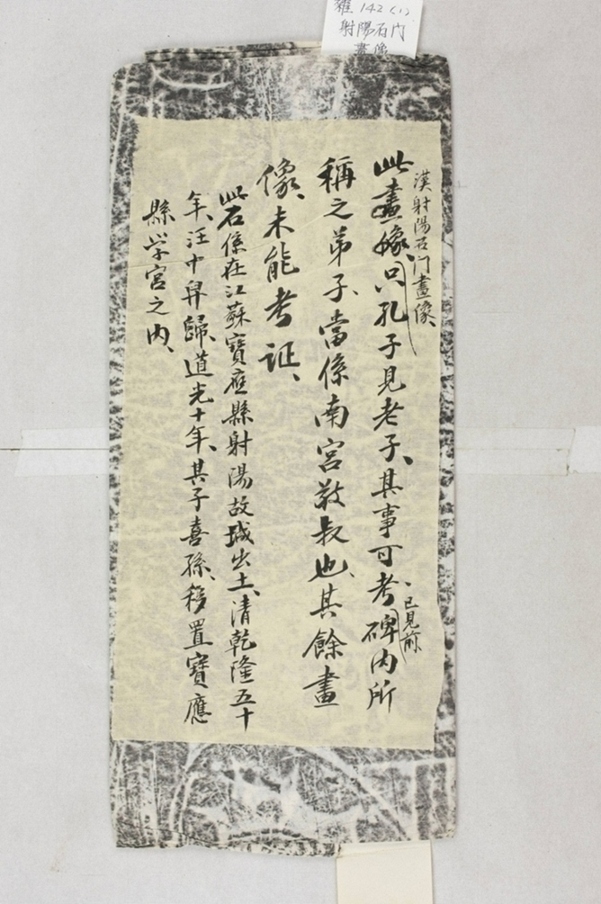 雜 142(1)
射陽石门
畫像
漢射陽石门畫像
此畫像、只孔子見老子、其事可考、碑内所
已見前
稱之弟子、當係南宮敬叔也、其餘畫
像、未能考証、
此石係在江蘇寶應縣射陽故城出土、清乾隆五十
年、汪中舁歸、道光十年、其子喜孫、移置寶應
縣学宮之内、